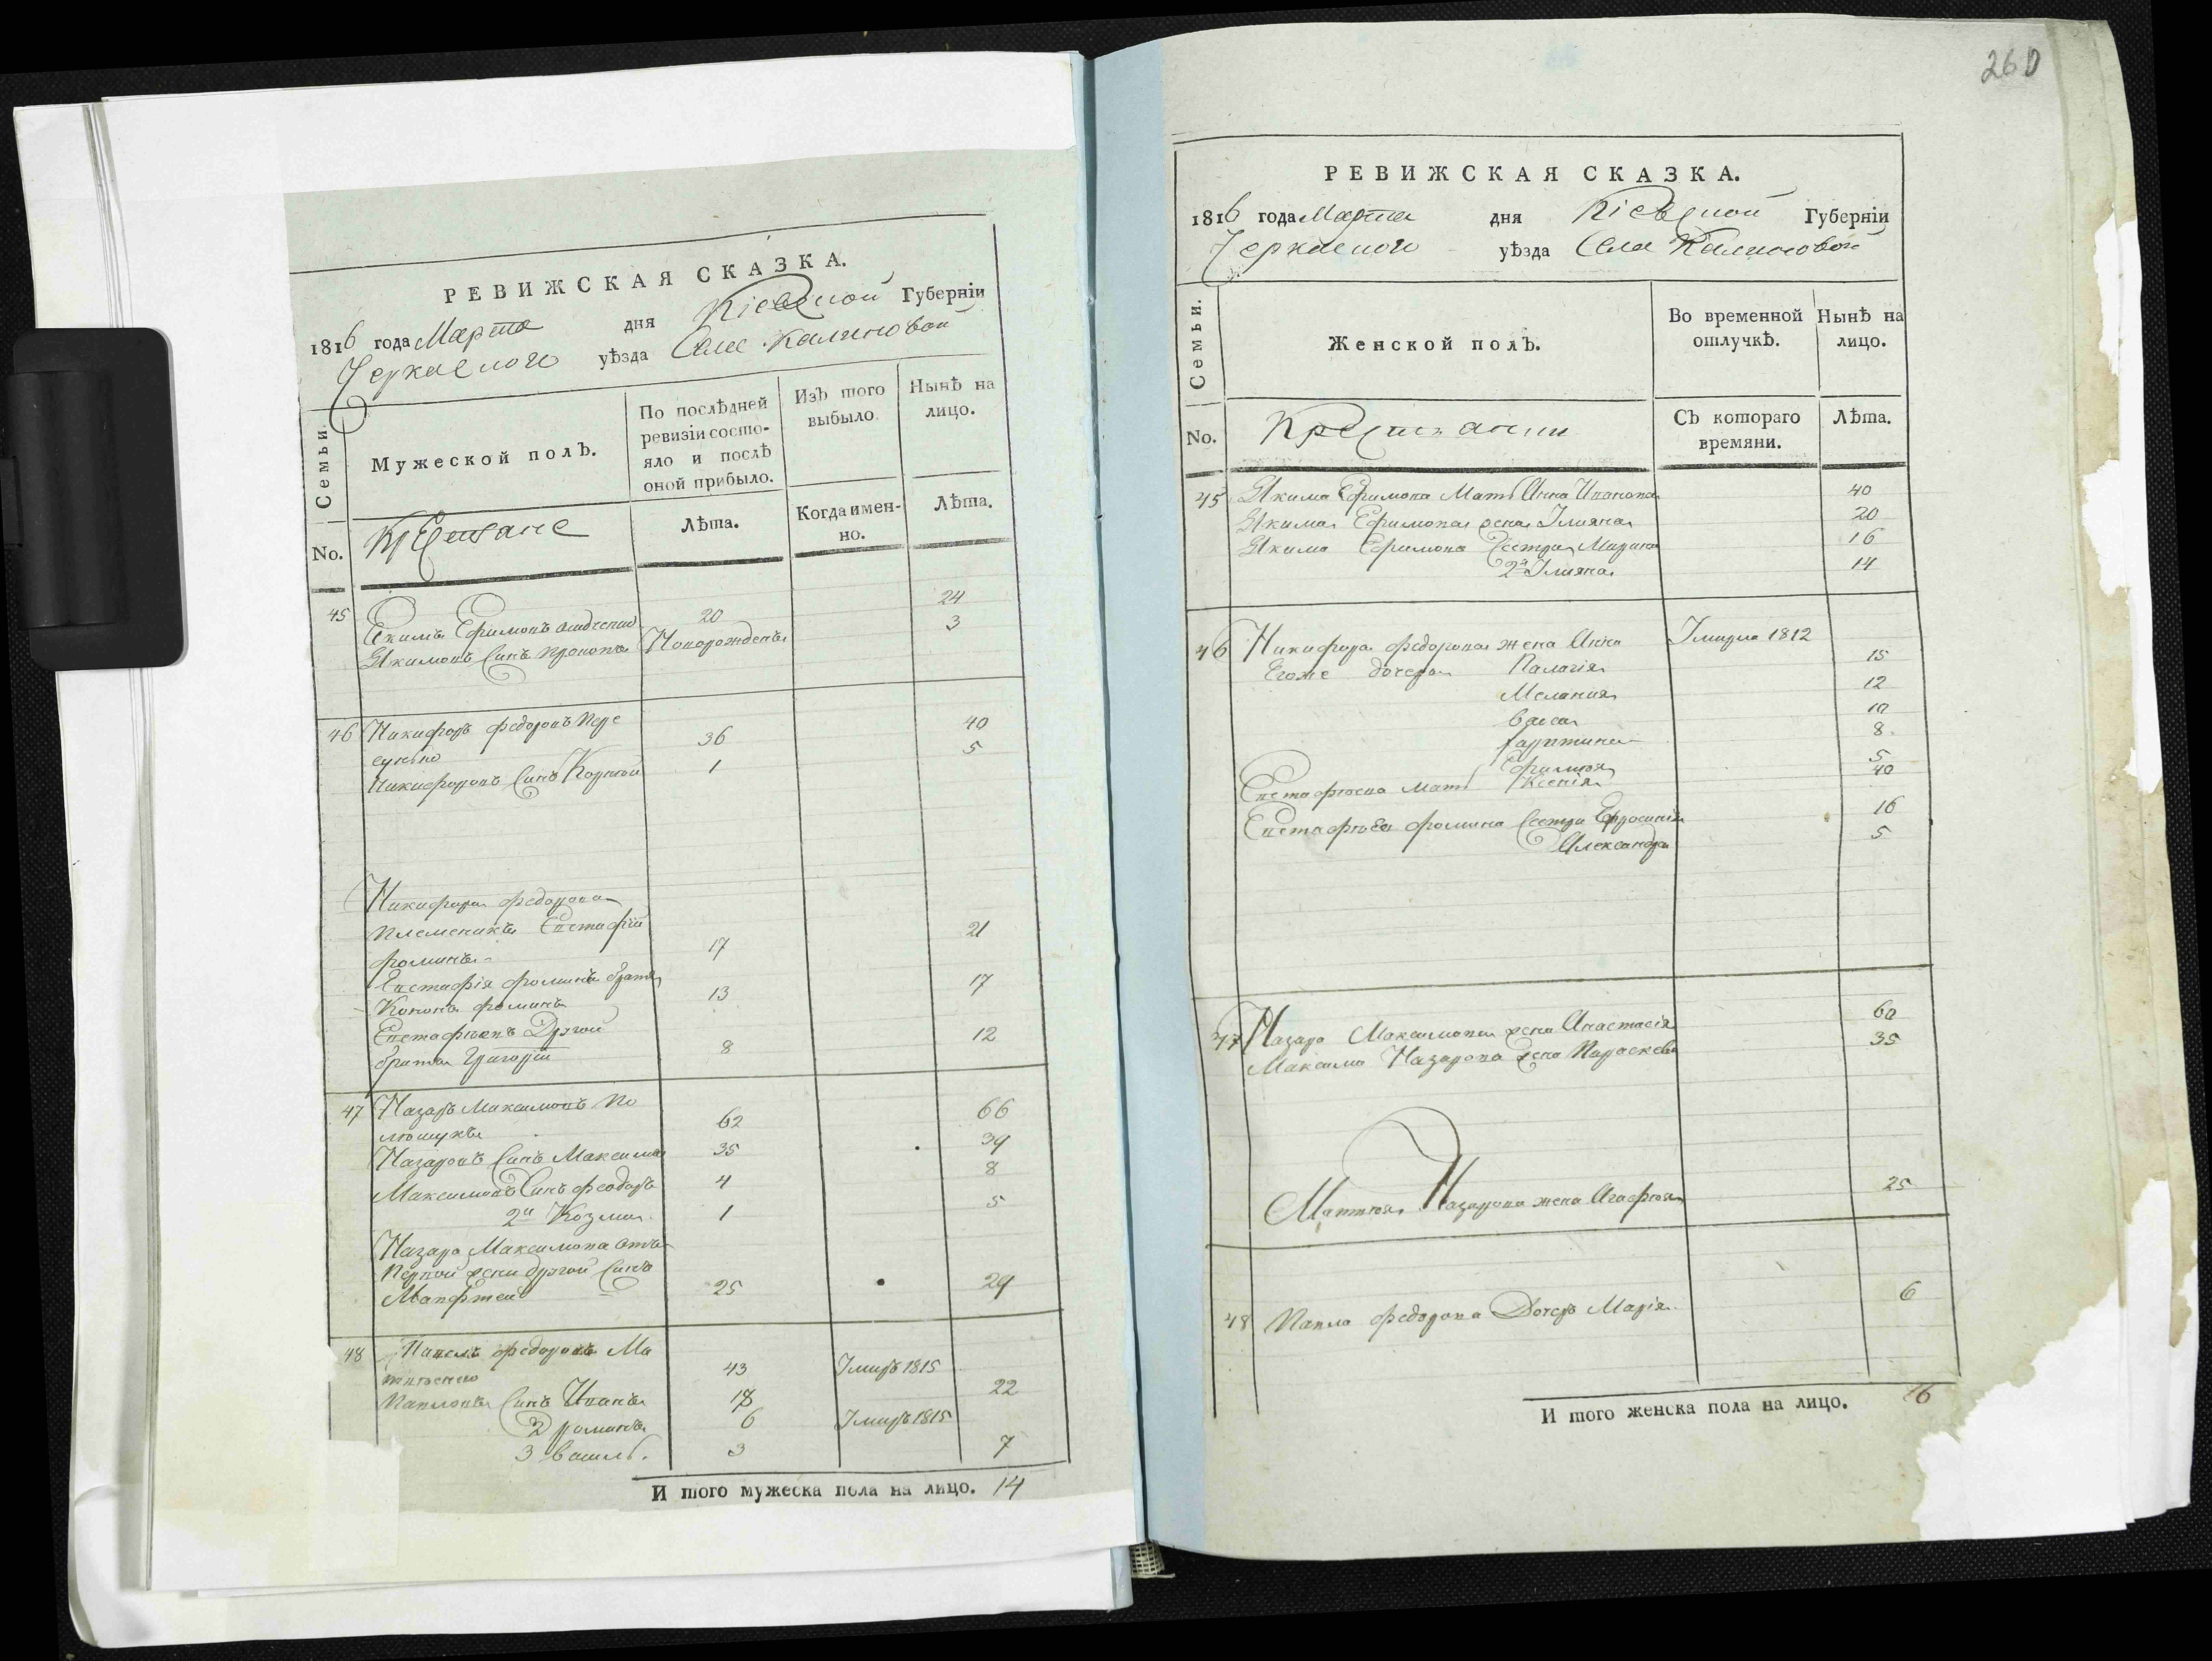 РЕВИЖСКАЯ СКАЗКА.
1816 года Марта дня Кіевской Губерніи
Черкаского уѣзда Села Калиновой
Семьи.
Мужеской полъ.
По послѣдней ревизіи состояло и послѣ оной прибыло.
Изъ того выбыло.
Нынѣ на лицо.
No.
Крестяне
Лѣта.
Когда именно.
Лѣта.
45 Екимъ Ефимовъ 20 24
Якимовъ Синъ Прокопъ Новорожденъ 3
46 Никифоръ Федоровъ Пере
36 40
Никифоровъ Синъ 1 5
Никифора Федорова
Племеникъ Евстафій
Фоминъ 17 21
Евстафія Фоминъ братъ
Кононъ Фоминъ 13 17
Евстафіевъ Другой
братъ Григорій 8 12
47 Назаръ Максимовъ По
люшукъ 62 66
Назаровъ Синъ Максимъ 35 39
Максимовъ Синъ Феодоръ 4 8
2й Козма 1 5
Назара Максимова отъ
Первой жени другой Синъ
Матфей 25 29
48 Павелъ Федоровъ Ма
43 Умиръ 1815
Павловъ Синъ Иванъ 18 22
2 Романъ 6 Умиръ 1815
3 Василь. 3 7
И того мужеска пола на лицо. 14
260
РЕВИЖСКАЯ СКАЗКА.
1816 года Марта дня Кіевской Губерніи
Черкаского уѣзда Села Калиновой
Семьи.
Женской полъ.
Во временной отлучкѣ.
Нынѣ на лицо.
No.
Крестянки
Съ котораго времяни.
Лѣта.
45 Якима Ефимова Мать Анна Иванова 40
Якима Ефимова жена Уліяна 20
Якима Ефимова Сестра Марина 16
2я Уліяна 14
46 Никифора Федорова жена Анна Умирла 1812
Егоже дочери Палагія 15
Меланія 12
Васса 10
8
Ефимія 5
Евстафіева Мать Ксенія 40
Евстафіева Фомина Сестра Ефросинія 16
Александра 5
47 Назара Максимова жена Анастасія 60
Максима Назарова жена Параскева 35
Матвея Назарова жена Агафія 25
48 Павла Федорова Дочерь Марія 6
И того женска пола на лицо. 16